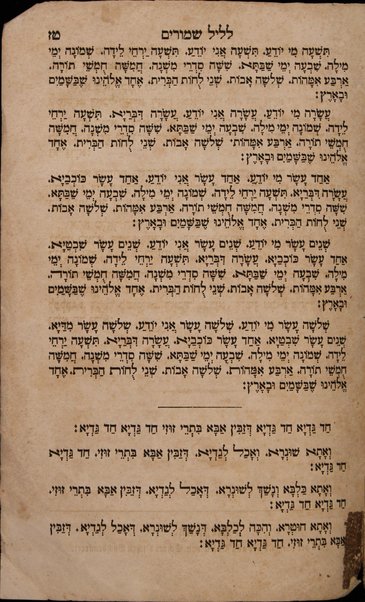 לליל שמורים
טז
תִּשְׁעָה מִי יוֹדֵעַ, תִּשְׁעָה אֲנִי יוֹדֵעַ, תִּשְׁעָה יַרְחֵי לֵידָה, שְׁמוֹנָה יְמֵי
מִילָה, שִׁבְעָה יְמֵי שַׁבַּתָּא, שִׁשָּׁה סִדְרֵי מִשְׁנָה, חֲמִשָּׁה חֻמְשֵׁי תוֹרָה,
אַרְבַּע אִמָּהוֹת, שְׁלֹשָׁה אָבוֹת, שְׁנֵי לֻחוֹת הַבְּרִית, אֶחָד אֱלֹהֵינוּ שֶׁבַּשָּׁמַיִם
וּבָאָרֶץ:
עֲשָׂרָה מִי יוֹדֵעַ, עֲשָׂרָה אֲנִי יוֹדֵעַ, עֲשָׂרָה דִּבְּרַיָּא, תִּשְׁעָה יַרְחֵי
לֵידָה, שְׁמוֹנָה יְמֵי מִילָה, שִׁבְעָה יְמֵי שַׁבַּתָּא, שִׁשָּׁה סִדְרֵי מִשְׁנָה, חֲמִשָּׁה
חֻמְשֵׁי תוֹרָה, אַרְבַּע אִמָּהוֹת, שְׁלֹשָׁה אָבוֹת, שְׁנֵי לֻחוֹת הַבְּרִית, אֶחָד
אֱלֹהֵינוּ שֶׁבַּשָּׁמַיִם וּבָאָרֶץ:
אַחַד עָשָׂר מִי יוֹדֵעַ, אַחַד עָשָׂר אֲנִי יוֹדֵעַ, אַחַד עָשָׂר כּוֹכְבַיָּא,
עֲשָׂרָה דִּבְּרַיָּא, תִּשְׁעָה יַרְחֵי לֵידָה, שְׁמוֹנָה יְמֵי מִילָה, שִׁבְעָה יְמֵי שַׁבַּתָּא,
שִׁשָּׁה סִדְרֵי מִשְׁנָה, חֲמִשָּׁה חֻמְשֵׁי תוֹרָה, אַרְבַּע אִמָּהוֹת, שְׁלֹשָׁה אָבוֹת,
שְׁנֵי לֻחוֹת הַבְּרִית, אֶחָד אֱלֹהֵינוּ שֶׁבַּשָּׁמַיִם וּבָאָרֶץ:
שְׁנֵים עָשָׂר מִי יוֹדֵעַ, שְׁנֵים עָשָׂר אֲנִי יוֹדֵעַ, שְׁנֵים עָשָׂר שִׁבְטַיָּא,
אַחַד עָשָׂר כּוֹכְבַיָּא, עֲשָׂרָה דִּבְּרַיָּא, תִּשְׁעָה יַרְחֵי לֵידָה, שְׁמוֹנָה יְמֵי
מִילָה, שִׁבְעָה יְמֵי שַׁבַּתָּא, שִׁשָּׁה סִדְרֵי מִשְׁנָה, חֲמִשָּׁה חֻמְשֵׁי תוֹרָה,
אַרְבַּע אִמָּהוֹת, שְׁלֹשָׁה אָבוֹת, שְׁנֵי לֻחוֹת הַבְּרִית, אֶחָד אֱלֹהֵינוּ שֶׁבַּשָּׁמַיִם
וּבָאָרֶץ:
שְׁלֹשָׁה עָשָׂר מִי יוֹדֵעַ, שְׁלֹשָׁה עָשָׂר אֲנִי יוֹדֵעַ, שְׁלֹשָׁה עָשָׂר מִדַּיָּא,
שְׁנֵים עָשָׂר שִׁבְטַיָּא, אַחַד עָשָׂר כּוֹכְבַיָּא, עֲשָׂרָה דִּבְּרַיָּא, תִּשְׁעָה יַרְחֵי
לֵידָה, שְׁמוֹנָה יְמֵי מִילָה, שִׁבְעָה יְמֵי שַׁבַּתָּא, שִׁשָּׁה סִדְרֵי מִשְׁנָה, חֲמִשָּׁה
חֻמְשֵׁי תוֹרָה, אַרְבַּע אִמָּהוֹת, שְׁלֹשָׁה אָבוֹת, שְׁנֵי לֻחוֹת הַבְּרִית, אֶחָד
אֱלֹהֵינוּ שֶׁבַּשָּׁמַיִם וּבָאָרֶץ:
חַד גַּדְיָא חַד גַּדְיָא דְּזַבִּין אַבָּא בִּתְרֵי זוּזֵי, חַד גַּדְיָא חַד גַּדְיָא:
וְאָתָא שׁוּנְרָא, וְאָכַל לְגַדְיָא, דְּזַבִּין אַבָּא בִּתְרֵי זוּזֵי, חַד גַּדְיָא
חַד גַּדְיָא:
וְאָתָא כַּלְבָּא, וְנָשַׁךְ לְשׁוּנְרָא, דְּאָכַל לְגַדְיָא, דְּזַבִּין אַבָּא בִּתְרֵי זוּזֵי,
חַד גַּדְיָא חַד גַּדְיָא:
וְאָתָא חוּטְרָא, וְהִכָּה לְכַלְבָּא, דְּנָשַׁךְ לְשׁוּנְרָא, דְּאָכַל לְגַדְיָא, דְּזַבִּין
אַבָּא בִּתְרֵי זוּזֵי, חַד גַּדְיָא חַד גַּדְיָא: